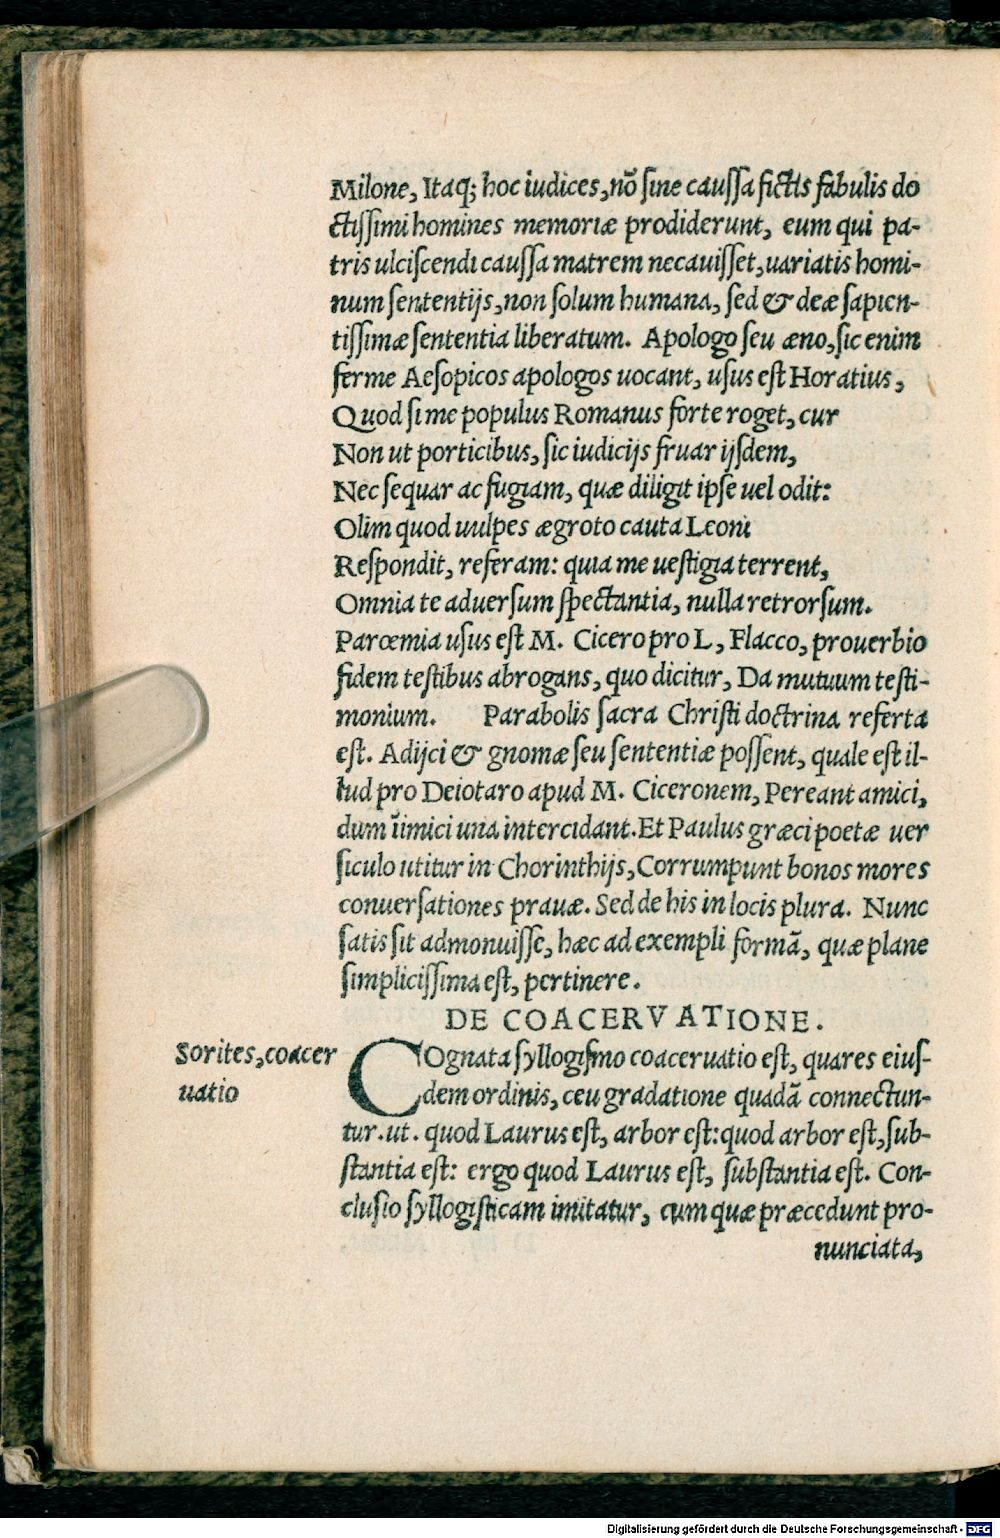 Milone, Itaq; hoc iudices, nõ sine caussa fictis fabulis do
ctissimi homines memoriæ prodiderunt, eum qui pa-
tris ulciscendi caussa matrem necauisset, uariatis homi-
num sententijs, non solum humana, sed & deæ sapien-
tissimæ sententia liberatum. Apologo seu æno, sic enim
ferme Aesopicos apologos uocant, usus est Horatius,
Quod si me populus Romanus forte roget, cur
Non ut porticibus, sic iudicijs fruar ijsdem,
Nec sequar ac fugiam, quæ diligit ipse uel odit:
Olim quod uulpes ægroto cauta Leoni
Respondit, referam: quia me uestigia terrent,
Omnia te aduersum spectantia, nulla retrorsum.
Parœmia usus est M. Cicero pro L, Flacco, prouerbio
fidem testibus abrogans, quo dicitur, Da mutuum testi-
monium. Parabolis sacra Christi doctrina referta
est. Adijci & gnomæ seu sententiæ possent, quale est il-
lud pro Deiotaro apud M. Ciceronem, Pereant amici,
dum ĩimici una intercidant. Et Paulus græci poetæ uer
siculo utitur in Chorinthijs, Corrumpunt bonos mores
conuersationes prauæ. Sed de his in locis plura. Nunc
satis sit admonuisse, hæc ad exempli formã, quæ plane
simplicissima est, pertinere.
DE COACERVATIONE.
Sorites, coacer
uatio
COgnata syllogismo coaceruatio est, qua res eius-
dem ordinis, ceu gradatione quadã connectun-
tur. ut. quod Laurus est, arbor est: quod arbor est, sub-
stantia est: ergo quod Laurus est, substantia est. Con-
clusio syllogisticam imitatur, cum quæ præcedunt pro-
nunciata,
Digitalisierung gefördert durch die Deutsche Forschungsgemeinschaft - DFG